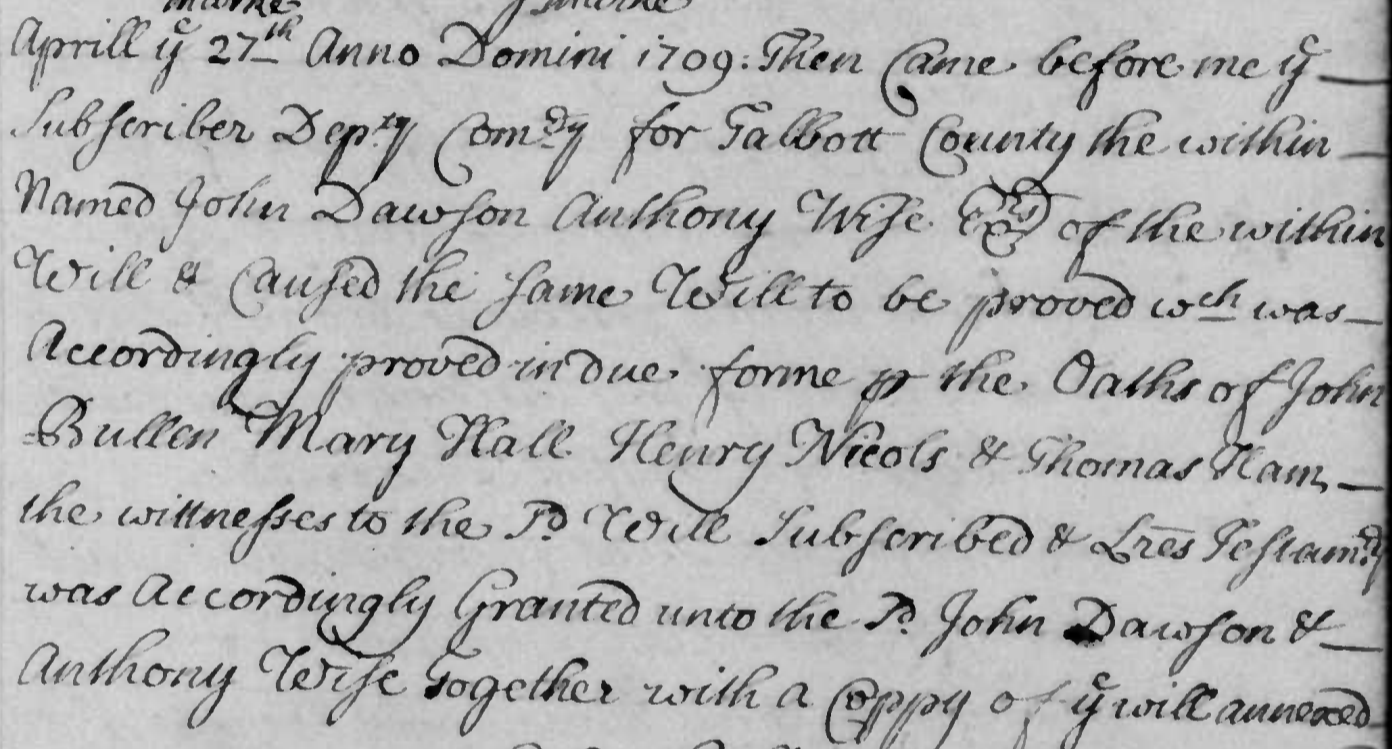 Aprill ye 27th Anno Domini 1709: Then Came before me ye
Subscriber Depty Comry for Talbott County the within
Named John Dawson Anthony Wise Exrs of the within
Will & Caused the same Will to be proved wch was
Accordingly proved in due forme pr the Oaths of John
Bullen Mary Hall Henry Nicols & Thomas Ham
the wittnesses to the Sd Will Subscribed & Lres Testamry
was Accordingly Granted unto the Sd John Dawson &
Anthony Wise Together with a Coppy of ye will annexed